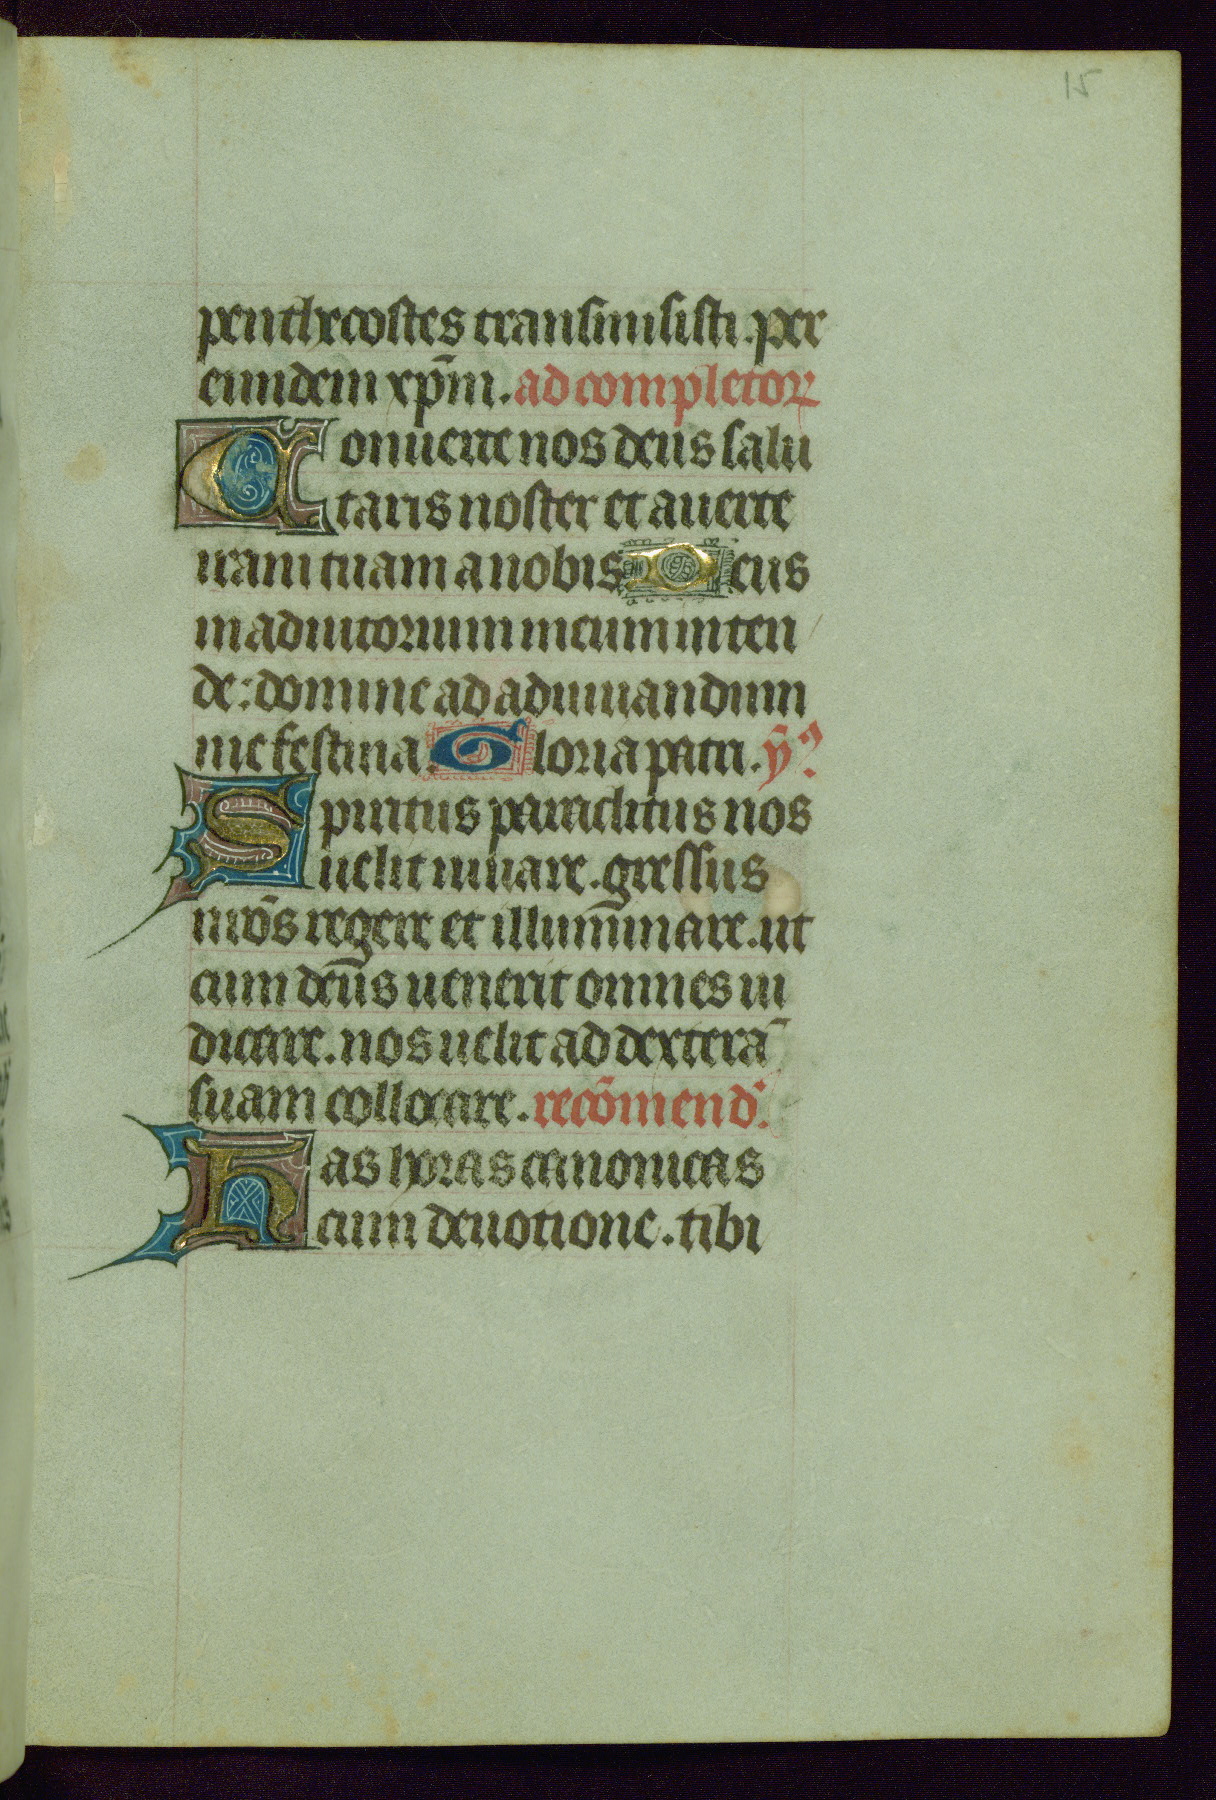 15
penthecostes transmisisti. per
eundem xp̄m. ad completoꝝ
Conuerte nos deus salu
taris noster et auerte
iram tuam a nobis Deus
in adiutorium meum inten
de: domine ad adiuuandum
me festina. Gloria patri. ym̄ꝰ
Spiritus paraclitus nos
uelit iuuare. gressus
nr̄os regere et illuminare. ut
cum deus uenerit omnes iu
dicare. nos uelit ad dexterā
suam collocare. recōmend'.
Has horas canonicas
cum deuotione. tibi